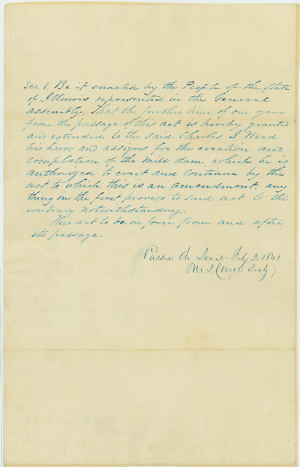 Sec 1. Be it enacted by the People of the State
of Illinois represented in the General
assembly, That the further time of one year
from the passage of this act is hereby granted
and extended to the said Charles
his heirs and assigns for the erection and
completion of the mill dam which he is
authorized to erect and continue by the
act to which this is an amendment, any
thing in the first proviso to said act to the
contrary notwithstanding.
This act to be in force from and after
its passage.
Feby 2, 1841